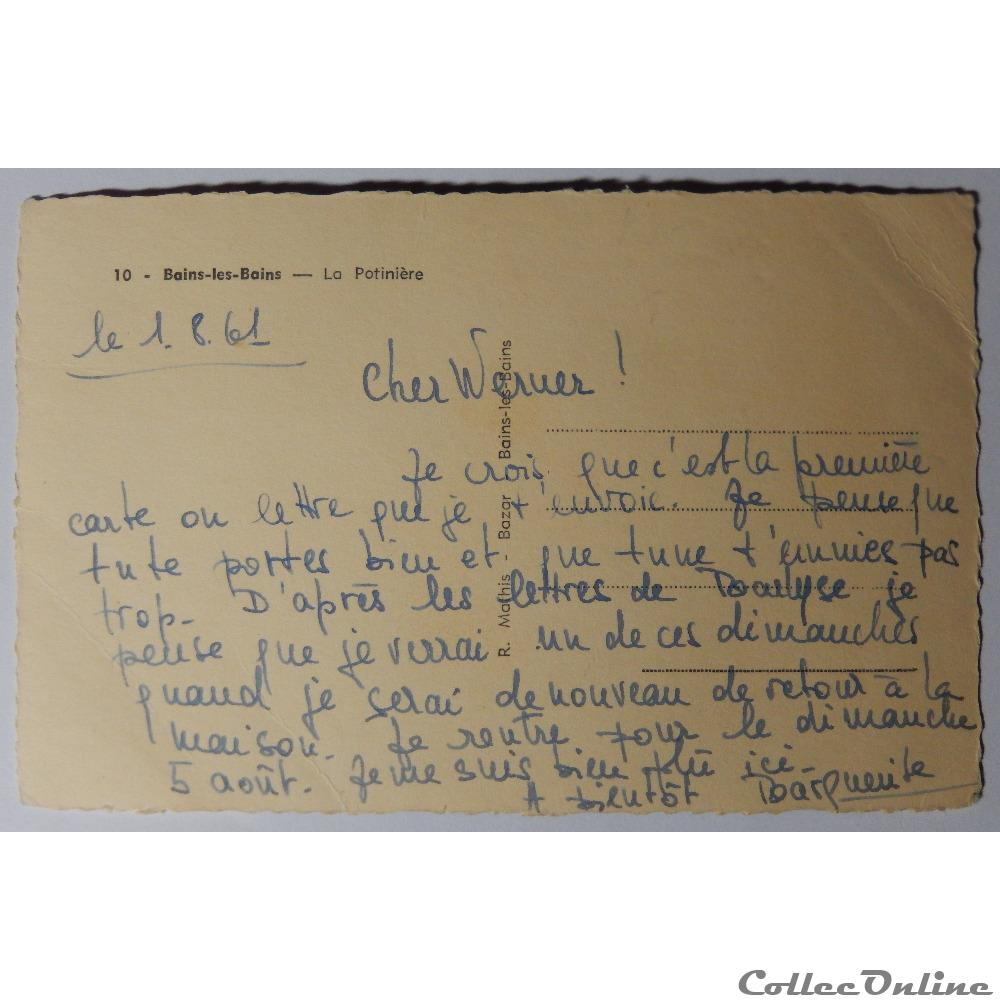 10 - Bains-les-Bains — La Potinière
le 1.8.61
Cher Werner !
Je crois que c'est la première
carte ou lettre que je t'envoie. Je pense que
tu te portes bien et que tu ne t'ennuies pas
trop. D'après les lettres de je
pense que je verrai un de ces dimanches
quand je serai de nouveau de retour à la
maison. Je rentre pour le dimanche
5 août. Je me suis bien plu ici.
A bientôt
R. Mathis - Bazar Bains-les-Bains
CollecOnline